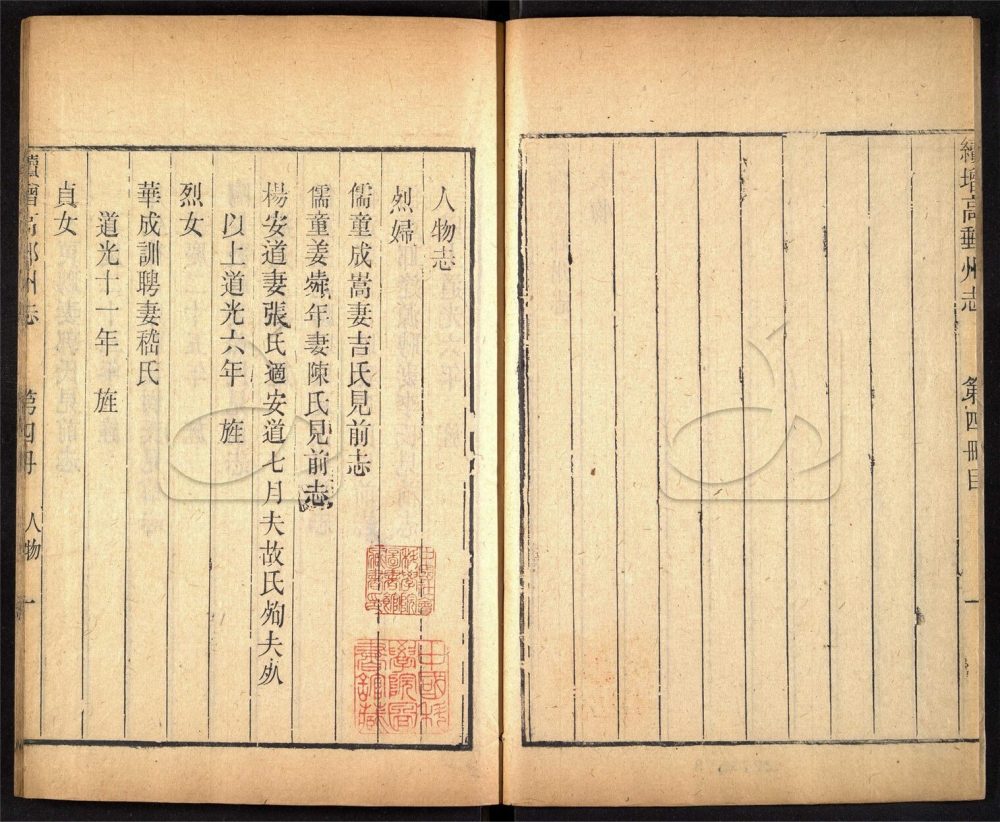 續增高郵州志 第四冊目 一
人物志
烈婦
儒童成嵩妻吉氏見前志
儒童姜舜年妻陳氏見前志
楊安道妻張氏適安道七月夫故氏殉夫死
以上道光六年 旌
烈女
華成訓聘妻嵇氏
道光十一年 旌
貞女
續增高郵州志 第四冊 人物 一
中國科學院圖書館藏